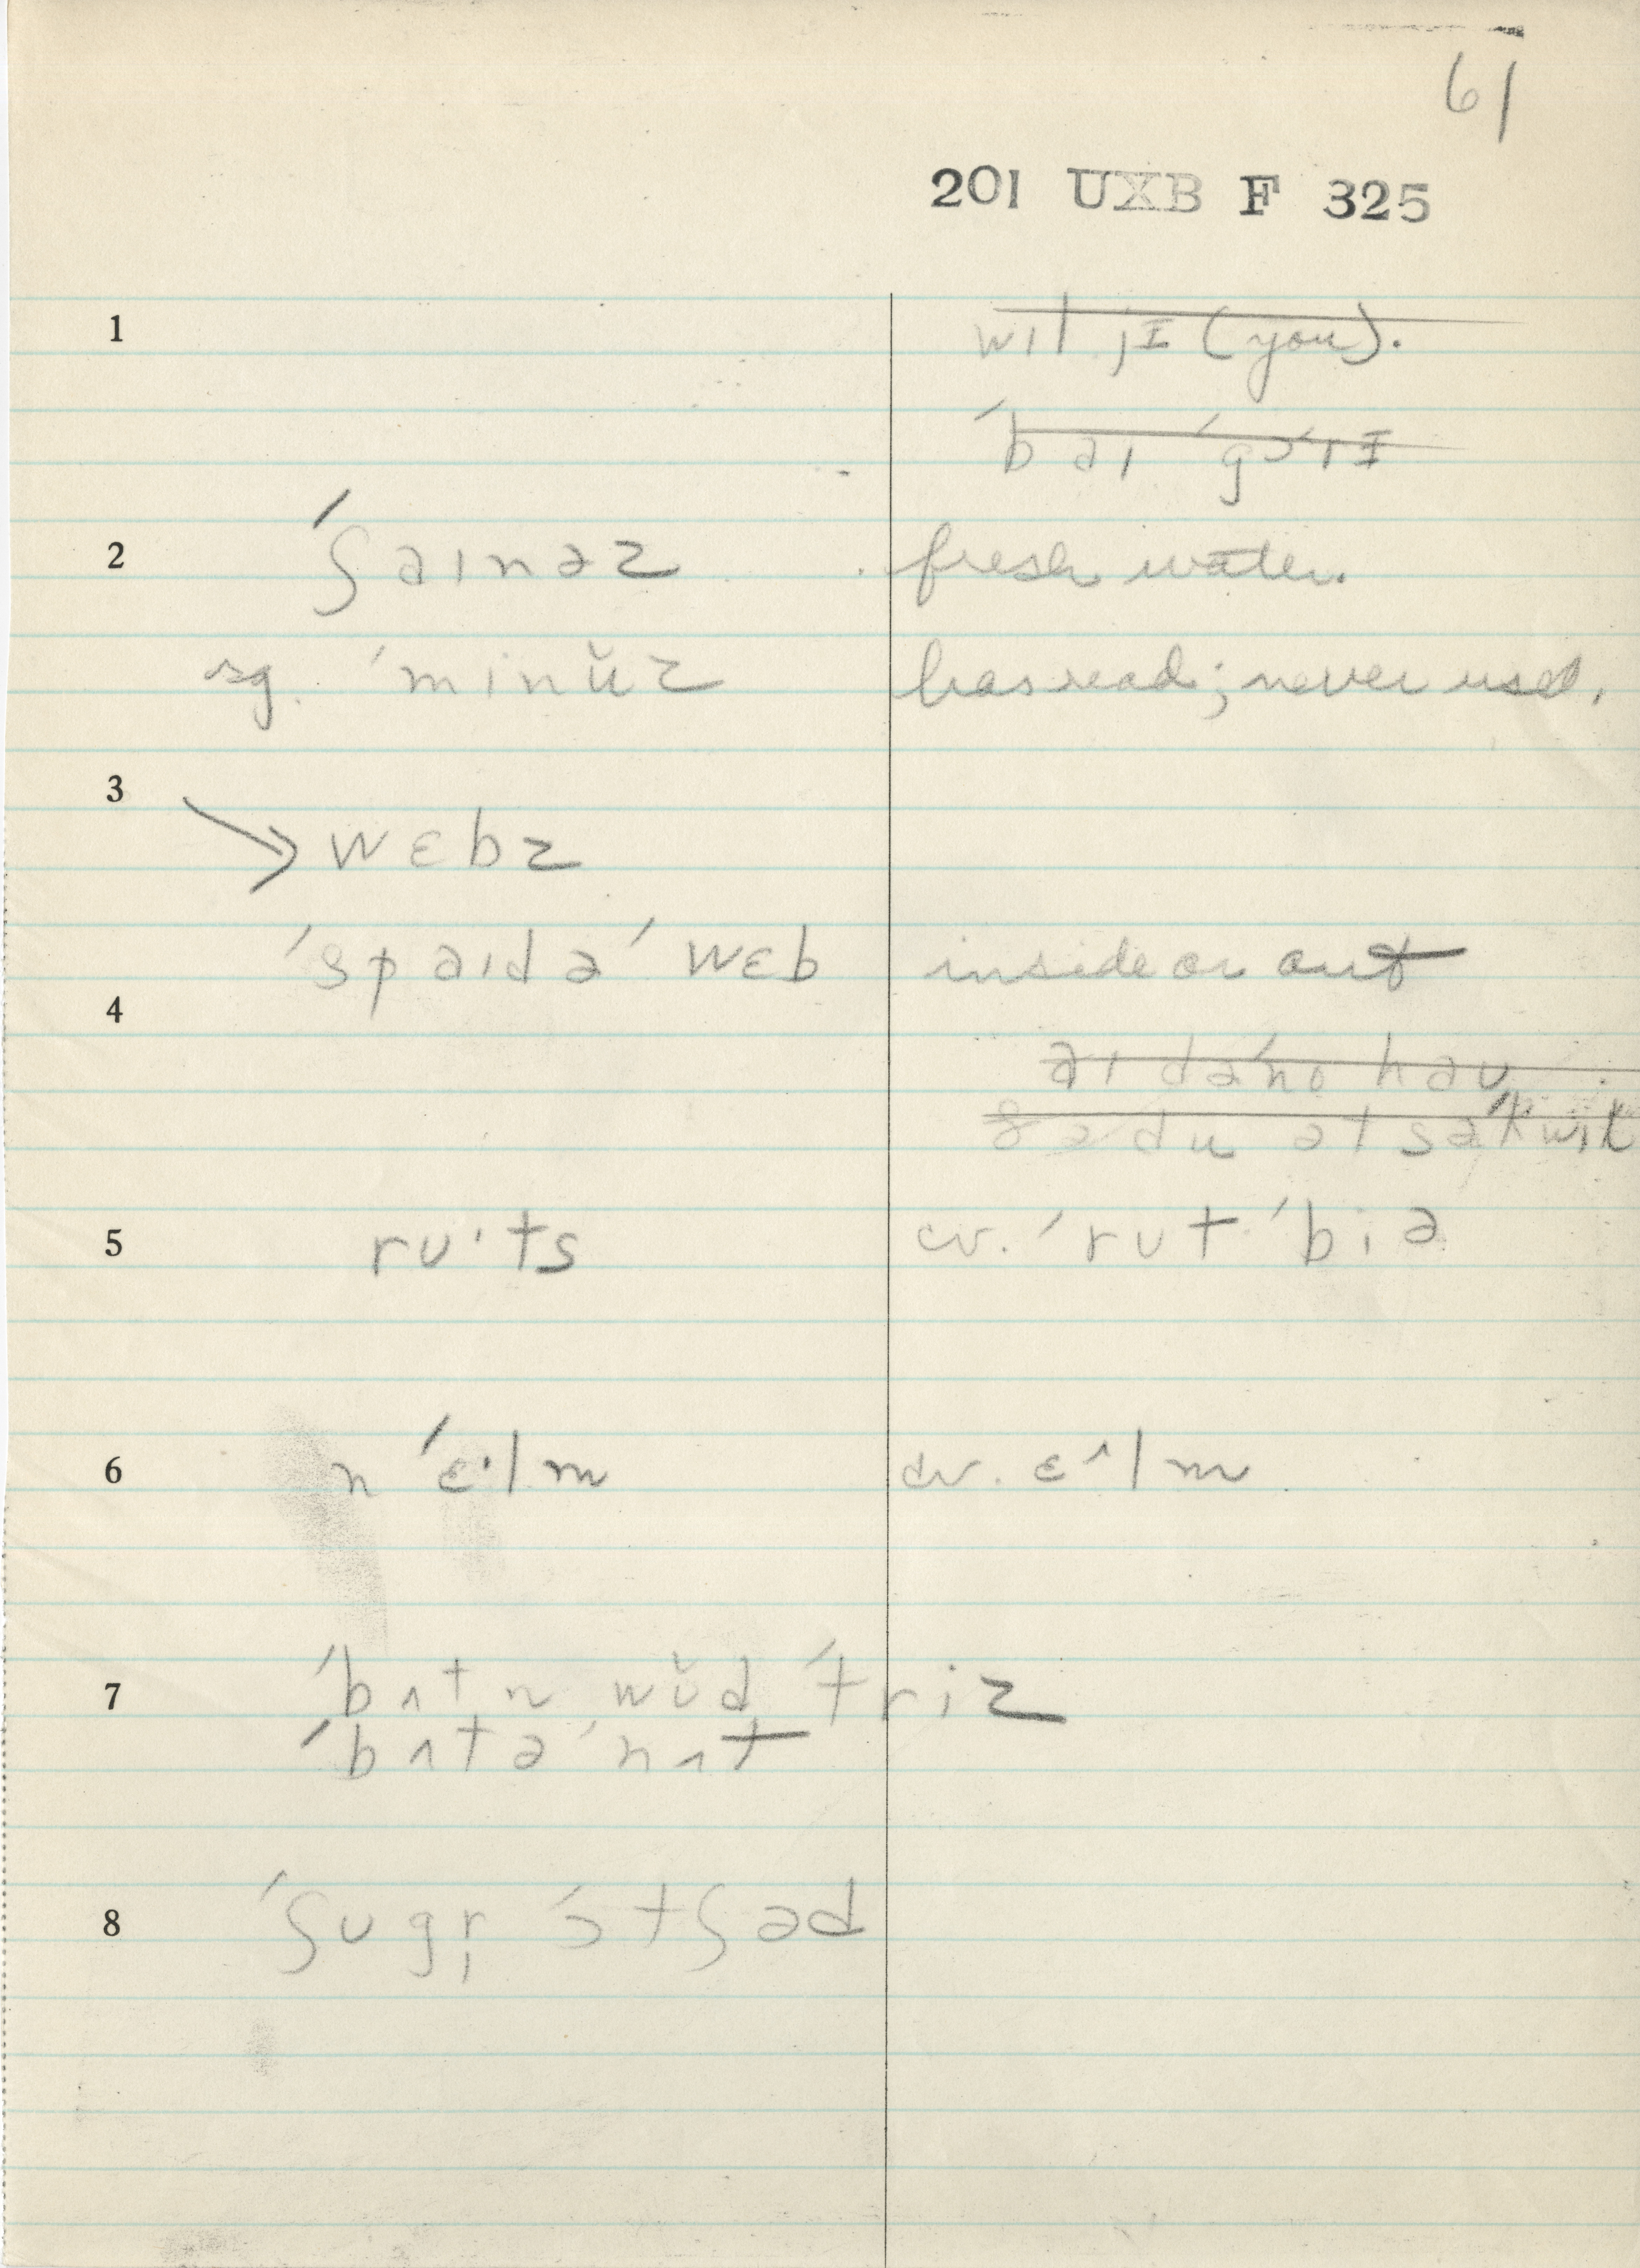 61
201 UXB F 325
1
wɪl jɪ (you).
ˈbaɪ ˈgɔˈrɪ
2 ˈʃaɪnəz fresh water.
sg. ˈmɪnŭz has read; never used.
3
→ wɛbz
ˈspaɪdəˈ wɛb inside or out
4
aɪ dəˈno haʊ
ðə du ət
5 rʊ·ts cv. ˈrʊt ˈbiə
6 n ˈɛ·lm cv. ɛ^lm
7 ˈbʌtn wŭd ˈtriz
ˈbʌtəˈnʌt
8 ˈʃʊgr̩ ˈɔtʃəd